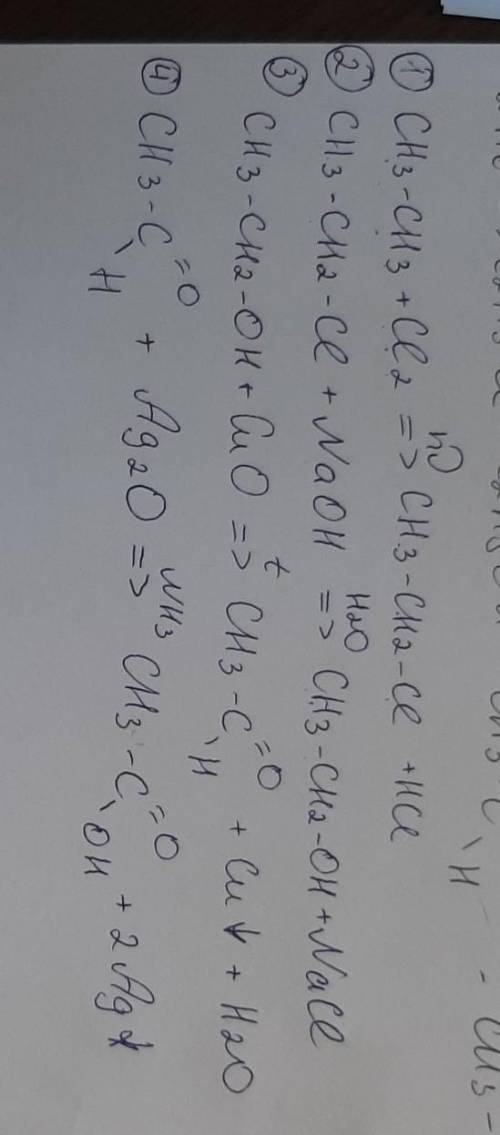 ① CH3-CH3 + Cl2 =>hν CH3-CH2-Cl + HCl
② CH3-CH2-Cl + NaOH =>H2O CH3-CH2-OH + NaCl
③ CH3-CH2-OH + CuO =>t CH3-C=O\H + Cu↓ + H2O
④ CH3-C=O\H + Ag2O =>NH3 CH3-C=O\OH + 2Ag↓